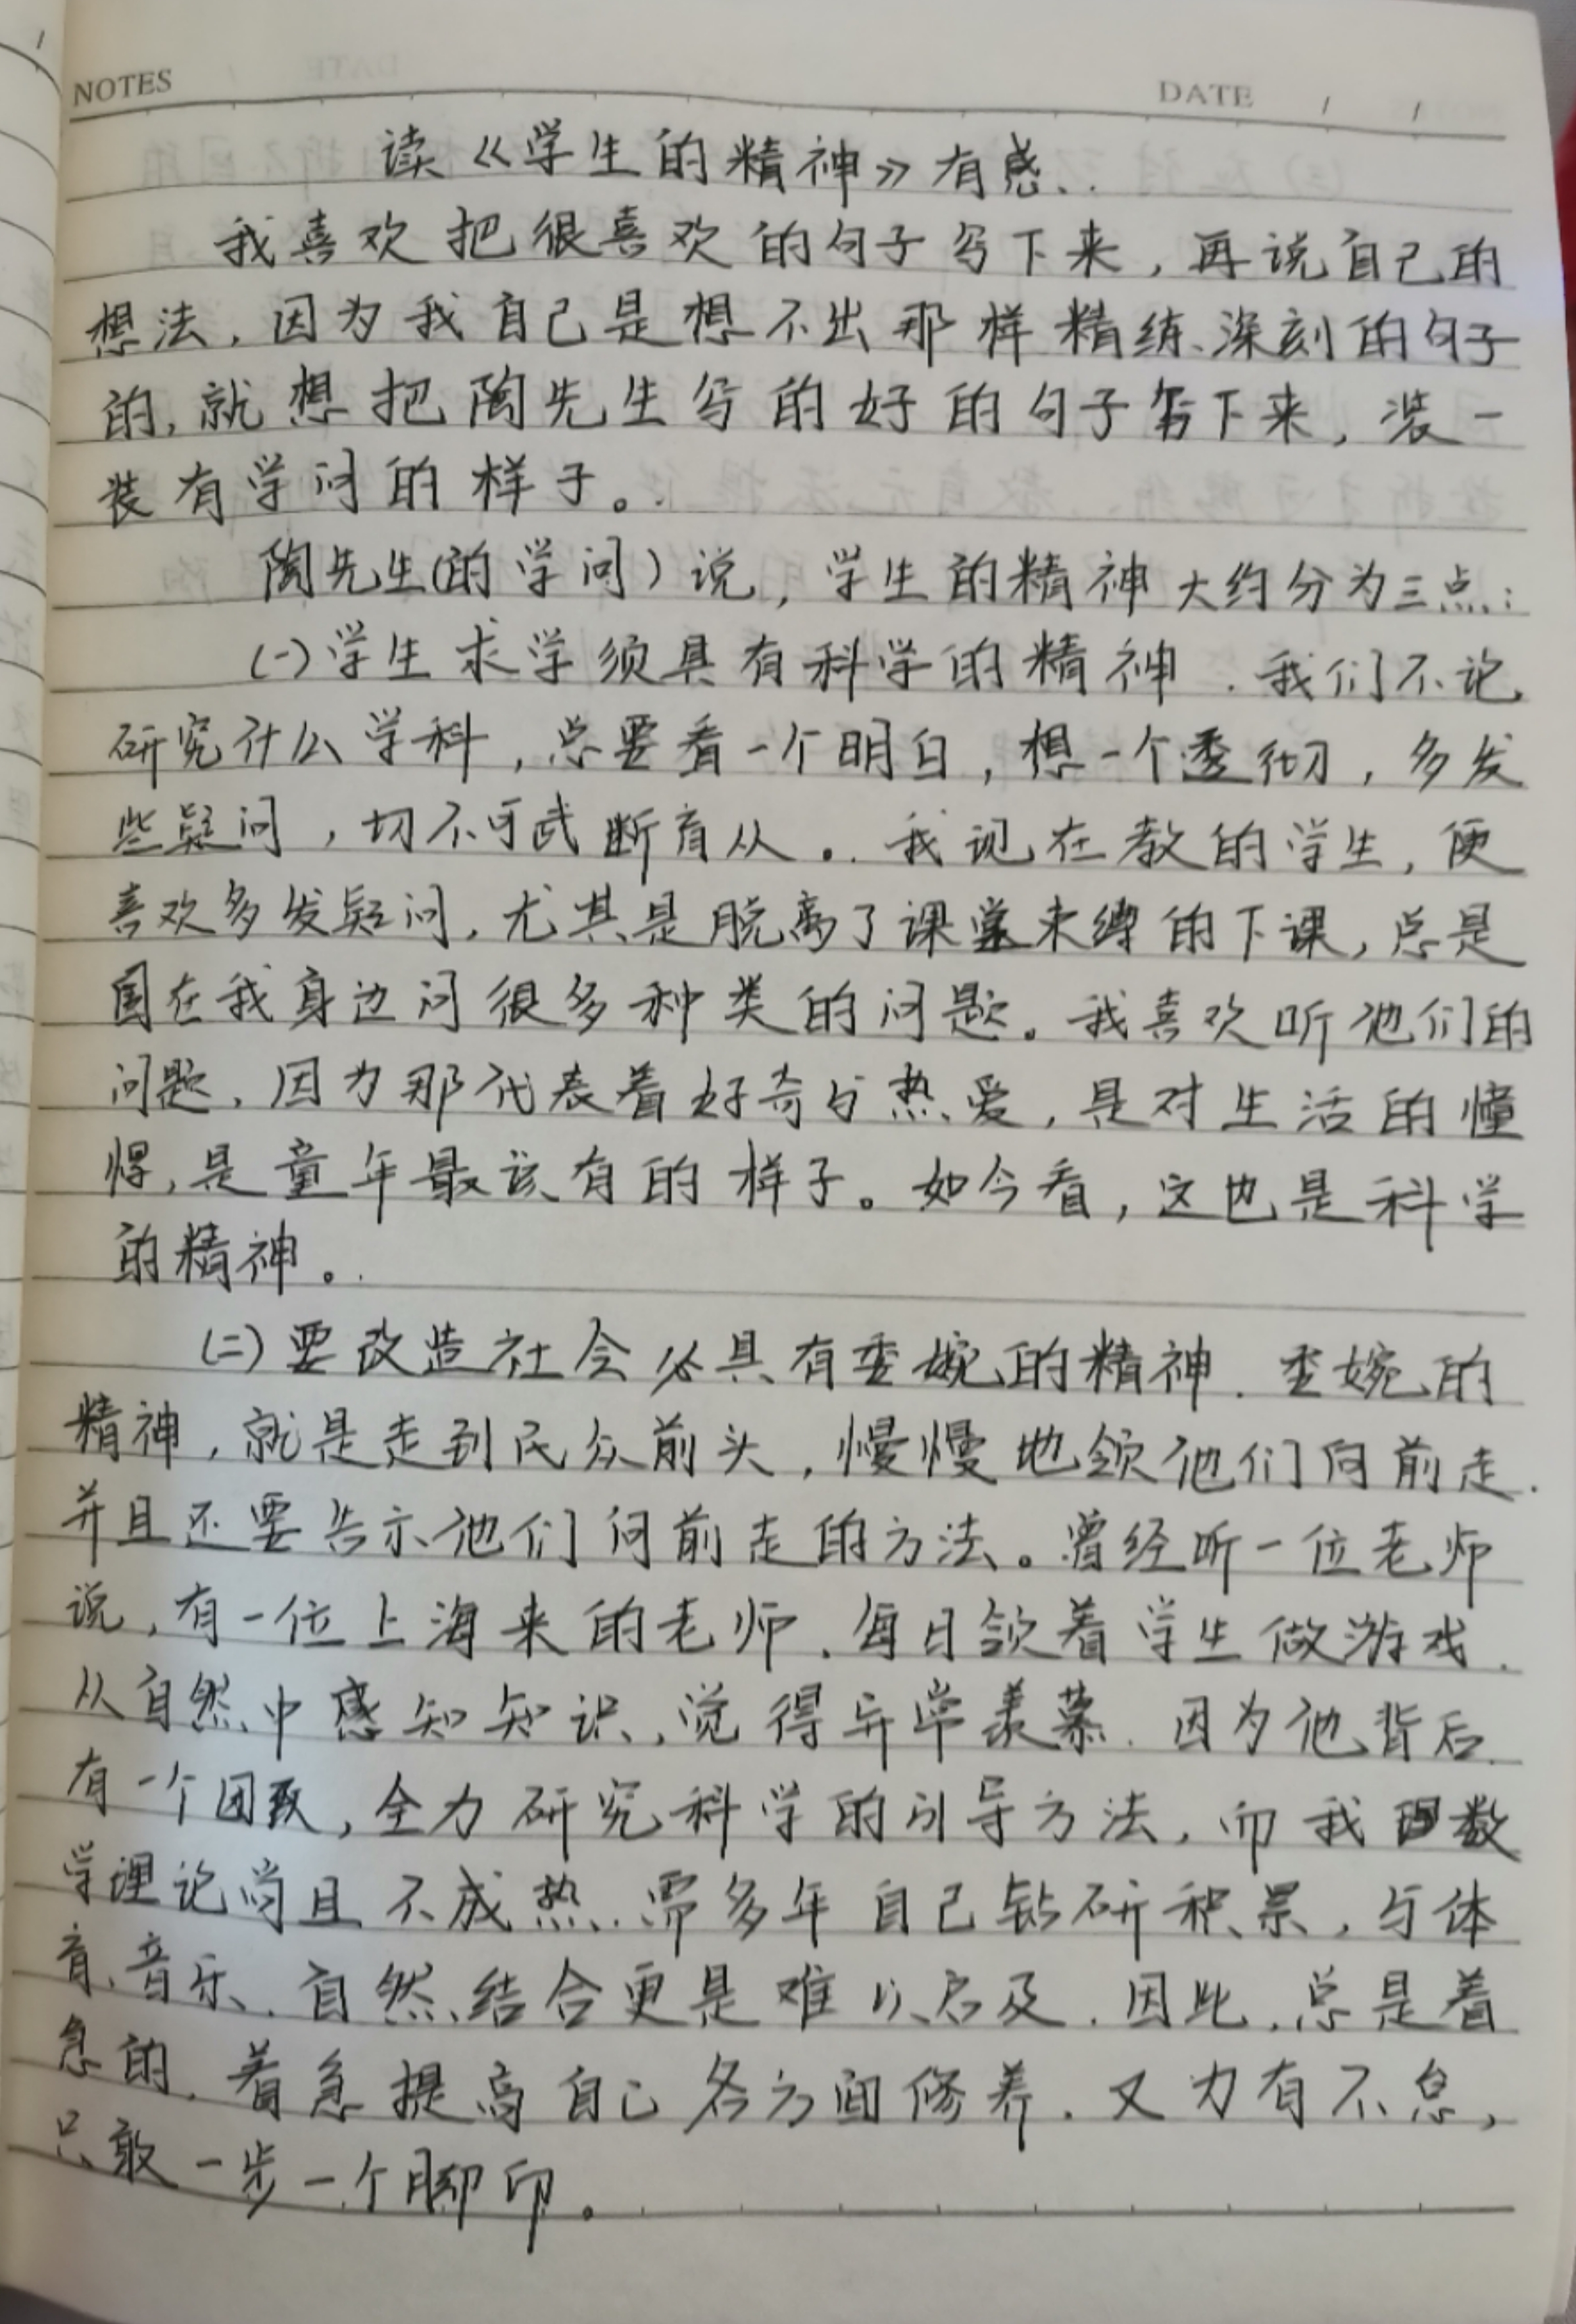 NOTES
DATE / /
读《学生的精神》有感.
我喜欢把很喜欢的句子写下来，再说自己的
想法，因为我自己是想不出那样精练、深刻的句子
的，就想把陶先生写的好的句子写下来，装一
装有学问的样子。
陶先生(的学问)说，学生的精神大约分为三点：
(一)学生求学须具有科学的精神．我们不论
研究什么学科，总要看一个明白，想一个透彻，多发
些疑问，切不可武断盲从。我现在教的学生，便
喜欢多发疑问，尤其是脱离了课堂束缚的下课，总是
围在我身边问很多种类的问题。我喜欢听他们的
问题，因为那代表着好奇与热爱，是对生活的憧
憬，是童年最该有的样子。如今看，这也是科学
的精神。
(二)要改造社会必具有委婉的精神．委婉的
精神，就是走到民众前头，慢慢地领他们向前走．
并且还要告示他们向前走的方法。曾经听一位老师
说，有一位上海来的老师．每日领着学生做游戏．
从自然中感知知识，觉得异常羡慕．因为他背后
有一个团队，全力研究科学的引导方法，而我数
学理论尚且不成熟．需多年自己钻研积累，与体
育、音乐、自然、结合更是难以启及．因此，总是着
急的．着急提高自己各方面修养．又力有不怠，
只敢一步一个脚印。